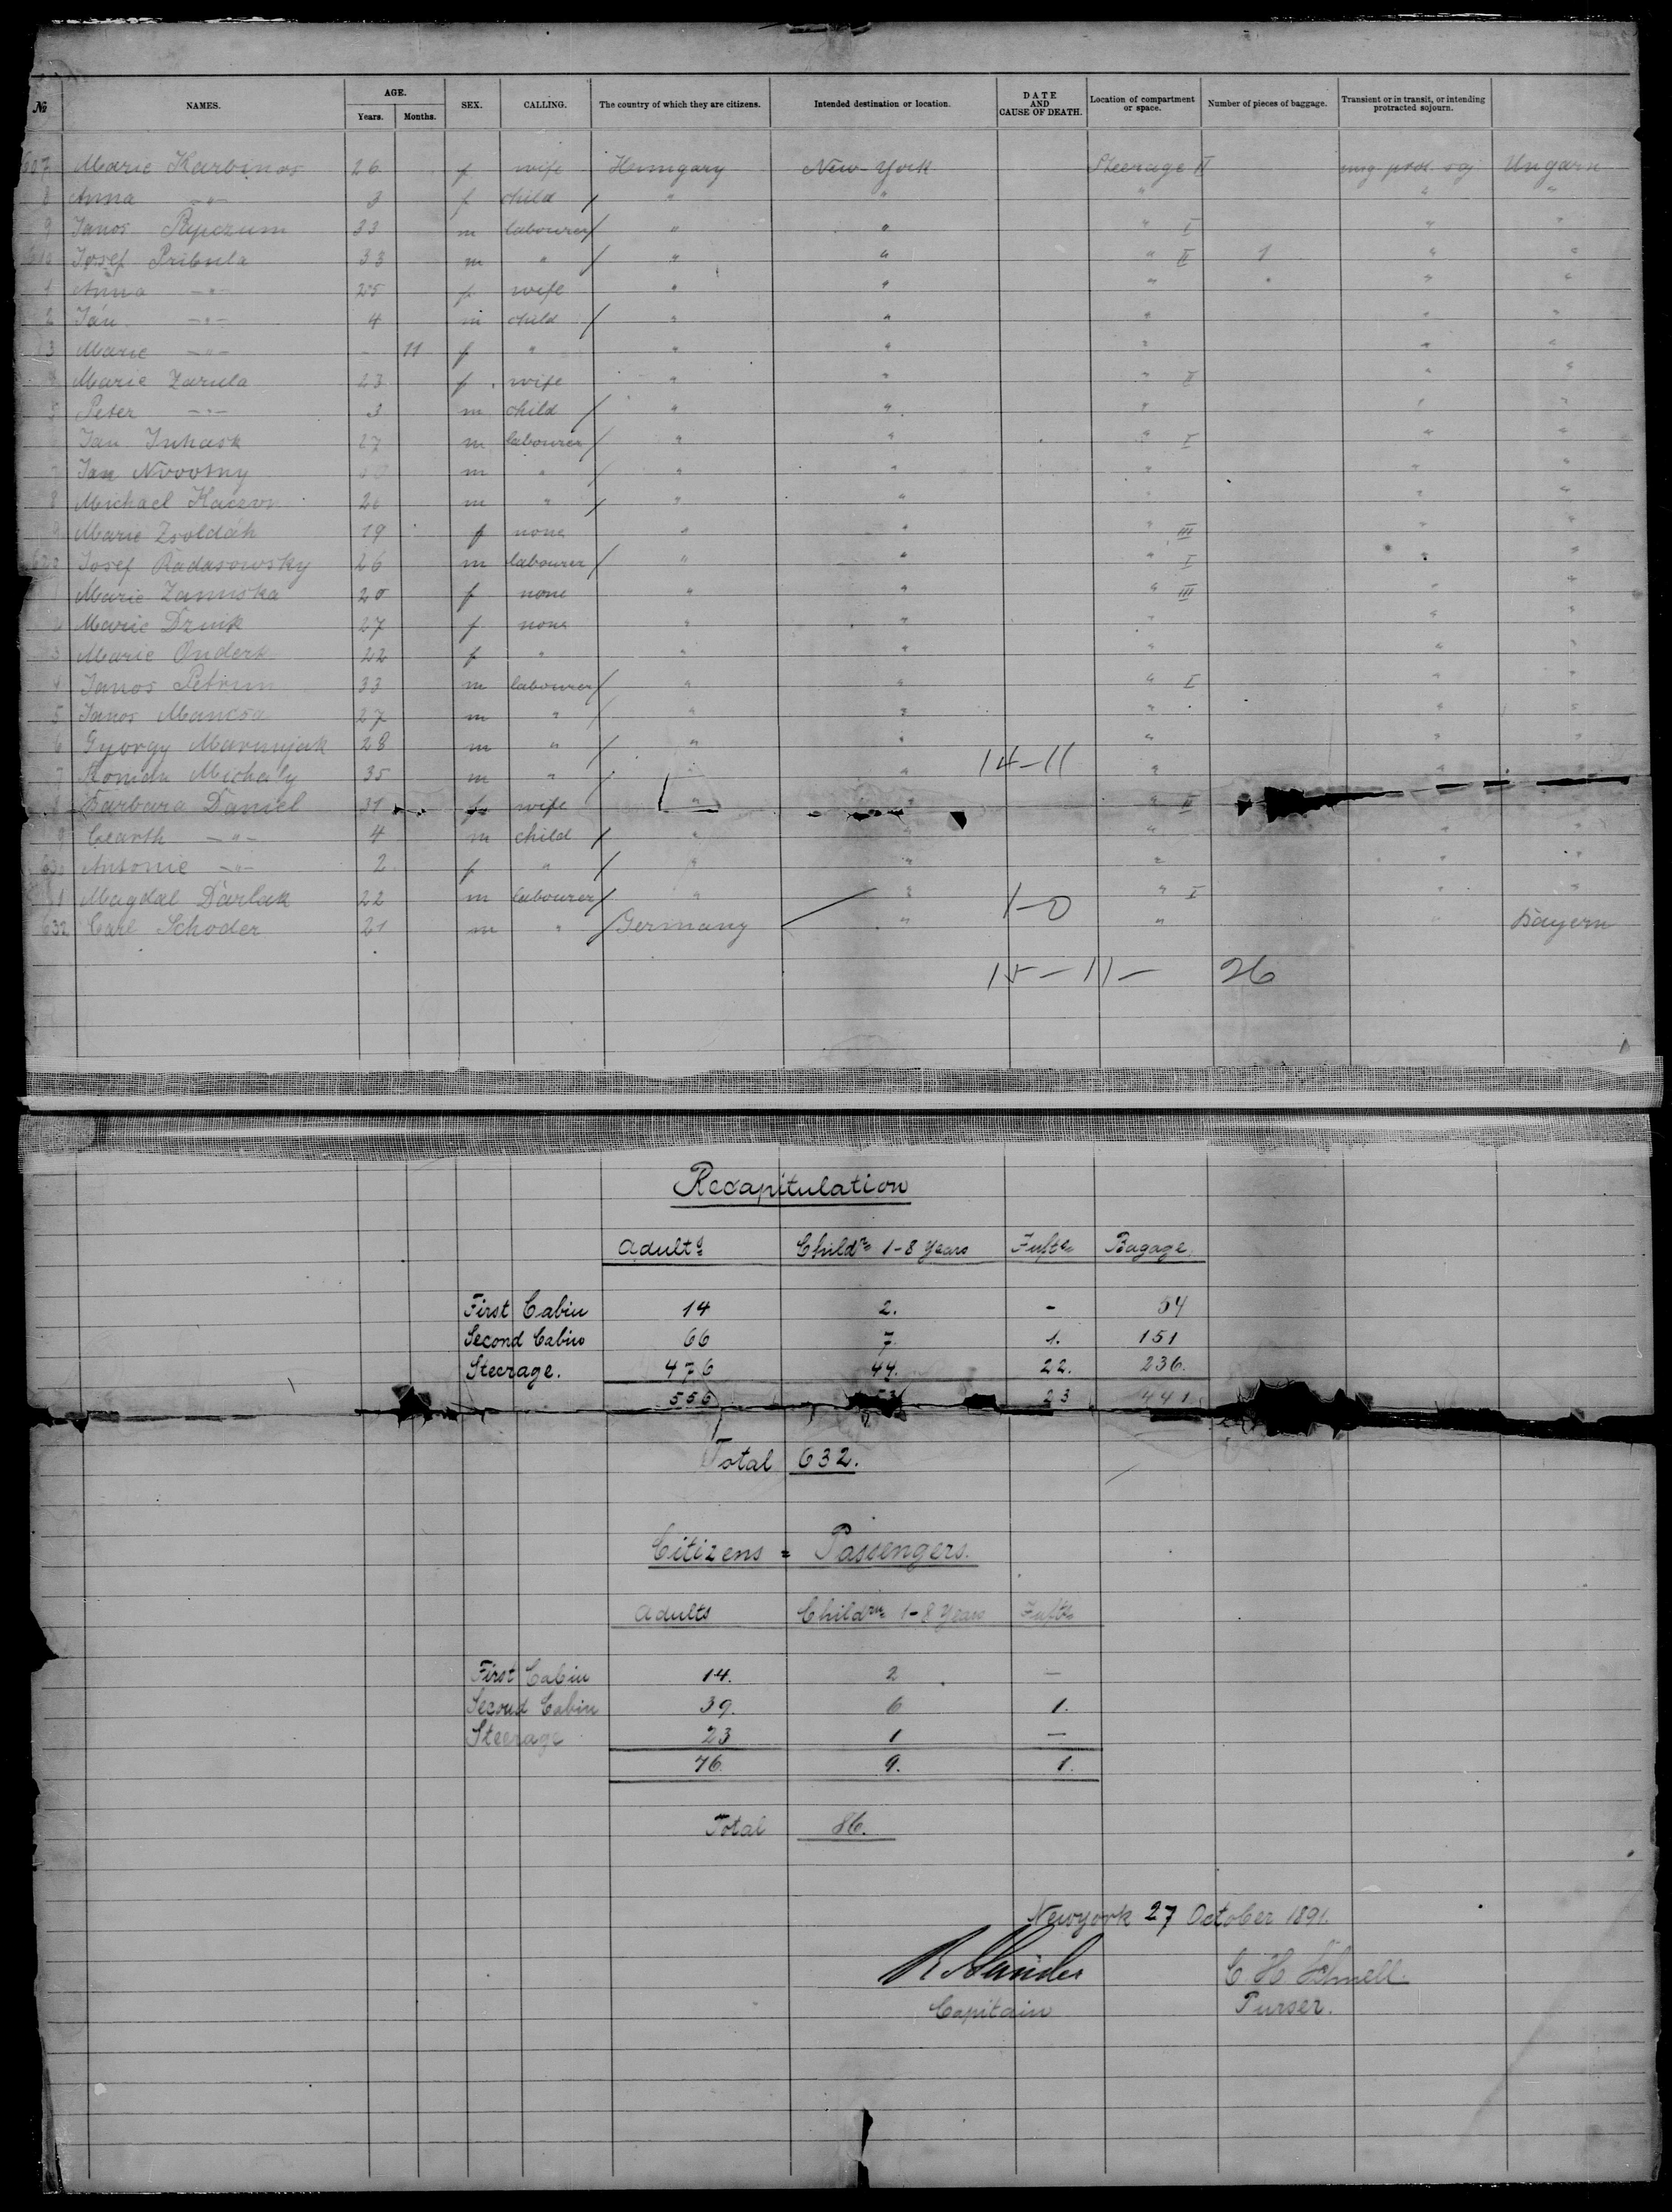 № NAMES. AGE. Years. Months. SEX. CALLING. The country of which they are citizens. Intended destination or location. DATE AND CAUSE OF DEATH. Location of compartment or space. Number of pieces of baggage. Transient or in transit, or intending protracted sojourn.
607 Marie Karbinos 26 f wife Hungary New-York Steerage II prot. soj Ungarn
8 Anna -"- 3 f child / " " " " "
9 Janos 33 m labourer / " " " I " "
610 Josef Pribula 33 m " / " " " II 1 " "
1 Anna -"- 25 f wife " " " " " "
2 Ján -"- 4 m child / " " " " "
3 Marie -"- - 11 f " " " " " "
4 Marie Zarula 23 f wife " " " II " "
5 Peter -"- 3 m child / " " " " "
Jan Juhask 27 m labourer / " " " I " "
7 Jan Novotny m " / " " " " "
8 Michael 26 m " / " " " " "
9 Marie Zsoldák 19 f none " " " III " "
620 Josef Radasowsky 26 m labourer / " " " I " "
1 Marie Zamiska 20 f none " " " III " "
2 Marie Dzuik 27 f none " " " " "
3 Marie Onderk 22 f " " " " " "
4 Janos Petrun 33 m labourer / " " " I " "
5 Janos Mancsa 27 m " / " " " " "
6 Gyorgy Marinjak 28 m " / " " " " "
7 Roman Michaly 35 m " / " " 14-11 " " "
Barbara Daniel 31 f wife " " " II
9 -"- 4 m child / " " " " "
630 Antonie -"- 2 f " / " " " " "
1 Magdal Darlak 22 m labourer / " " 1-0 " I " "
632 Carl Schoder 21 m " / Germany " " " Bayern
15-11- 26
Recapitulation
Adults Childrn 1-8 Years Infts Bagage
First Cabin 14 2. - 54
Second Cabin 66 7. 1. 151
Steerage. 476 44. 22. 236.
556 53 23 441
Total 632.
Citizens = Passengers.
Adults Childrn 1-8 Years Infts
First Cabin 14. 2 —
Second Cabin 39. 6 1.
Steerage 23 1 —
76. 9. 1.
Total 86.
Newyork 27 October 1891.
C. H.
Capitain Purser.